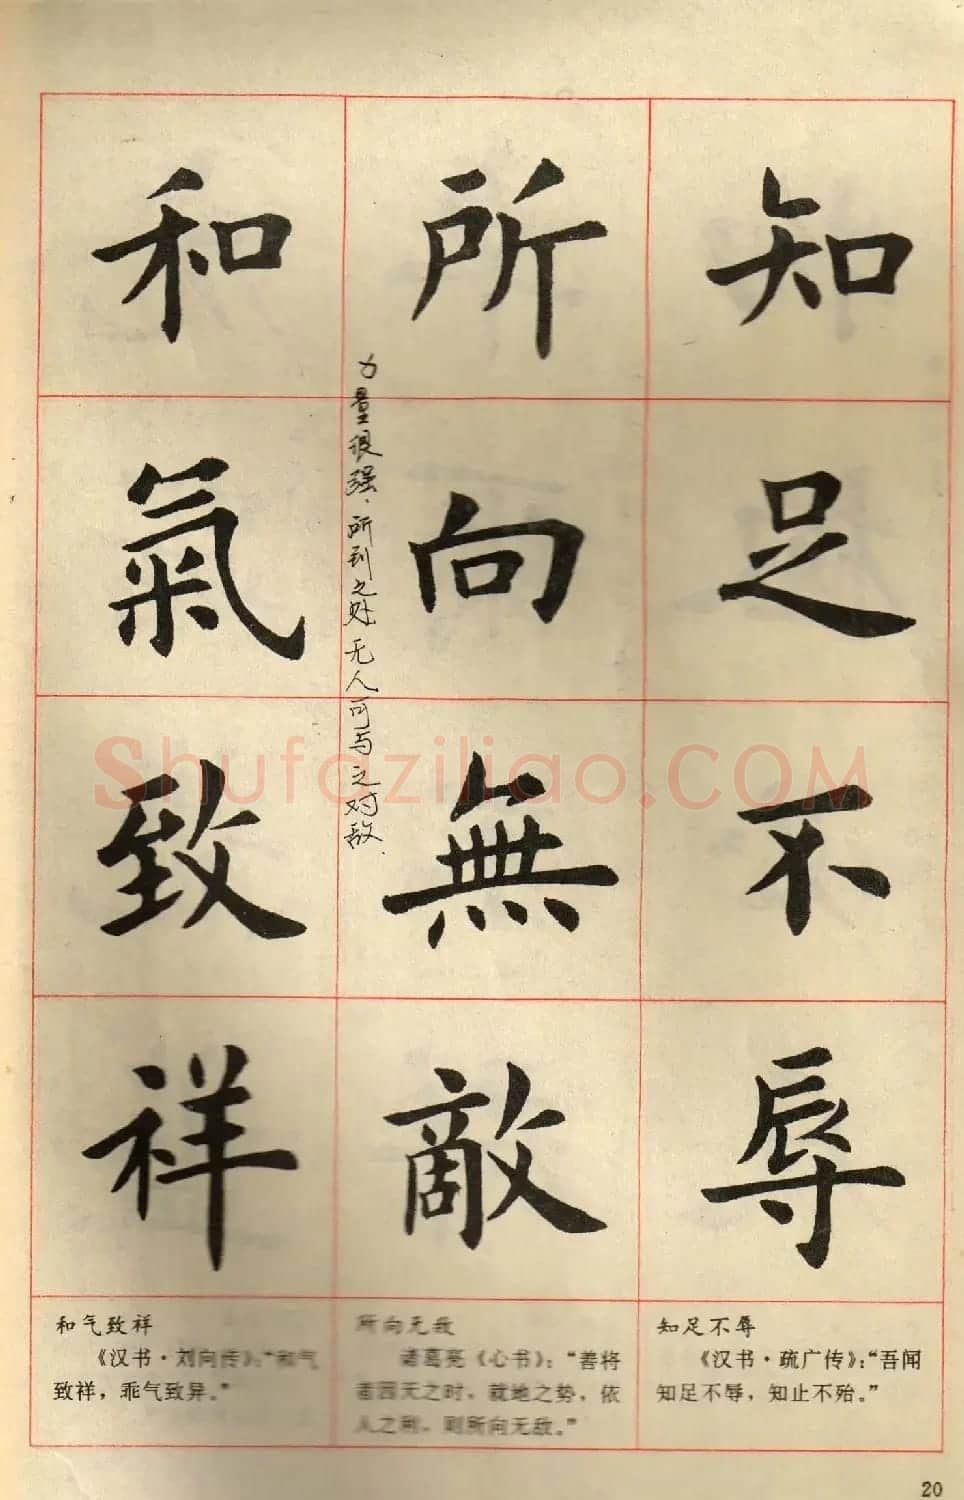 知足不辱
所向無敵
和氣致祥
力量很强，所到之处无人可与之对敌．
Shufaziliao.COM
知足不辱
《汉书·疏广传》：“吾闻
知足不辱，知止不殆。”
所向无敌
诸葛亮《心书》：“善将
者因天之时，就地之势，依
人之利，则所向无敌。”
和气致祥
《汉书·刘向传》：“和气
致祥，乖气致异。”
20